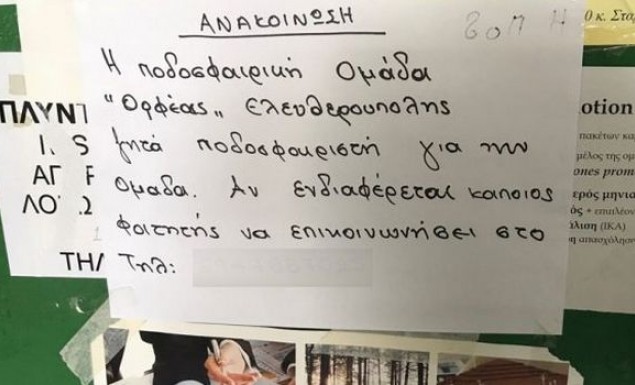 ΑΝΑΚΟΙΝΩΣΗ
Η ποδοσφαιρική Ομάδα
"Ορφέας" Ελευθερουπολης
ζητά ποδοσφαιριστή για την
ομαδα. Αν ενδιαφέρεται καποιος
φοιτητής να επικοινωνήσει στο
Τηλ:
0 κ. Στα
ΠΛΥΝΤ
Ι. S
ΑΓ Ρ
ΛΟ 2
ΤΗΛ
otion
πακέτων κα
μέλος της ομ
ones prom
ερός μηνια
ός + επιπλέον
άλιση (ΙΚΑ)
η απασχόληση